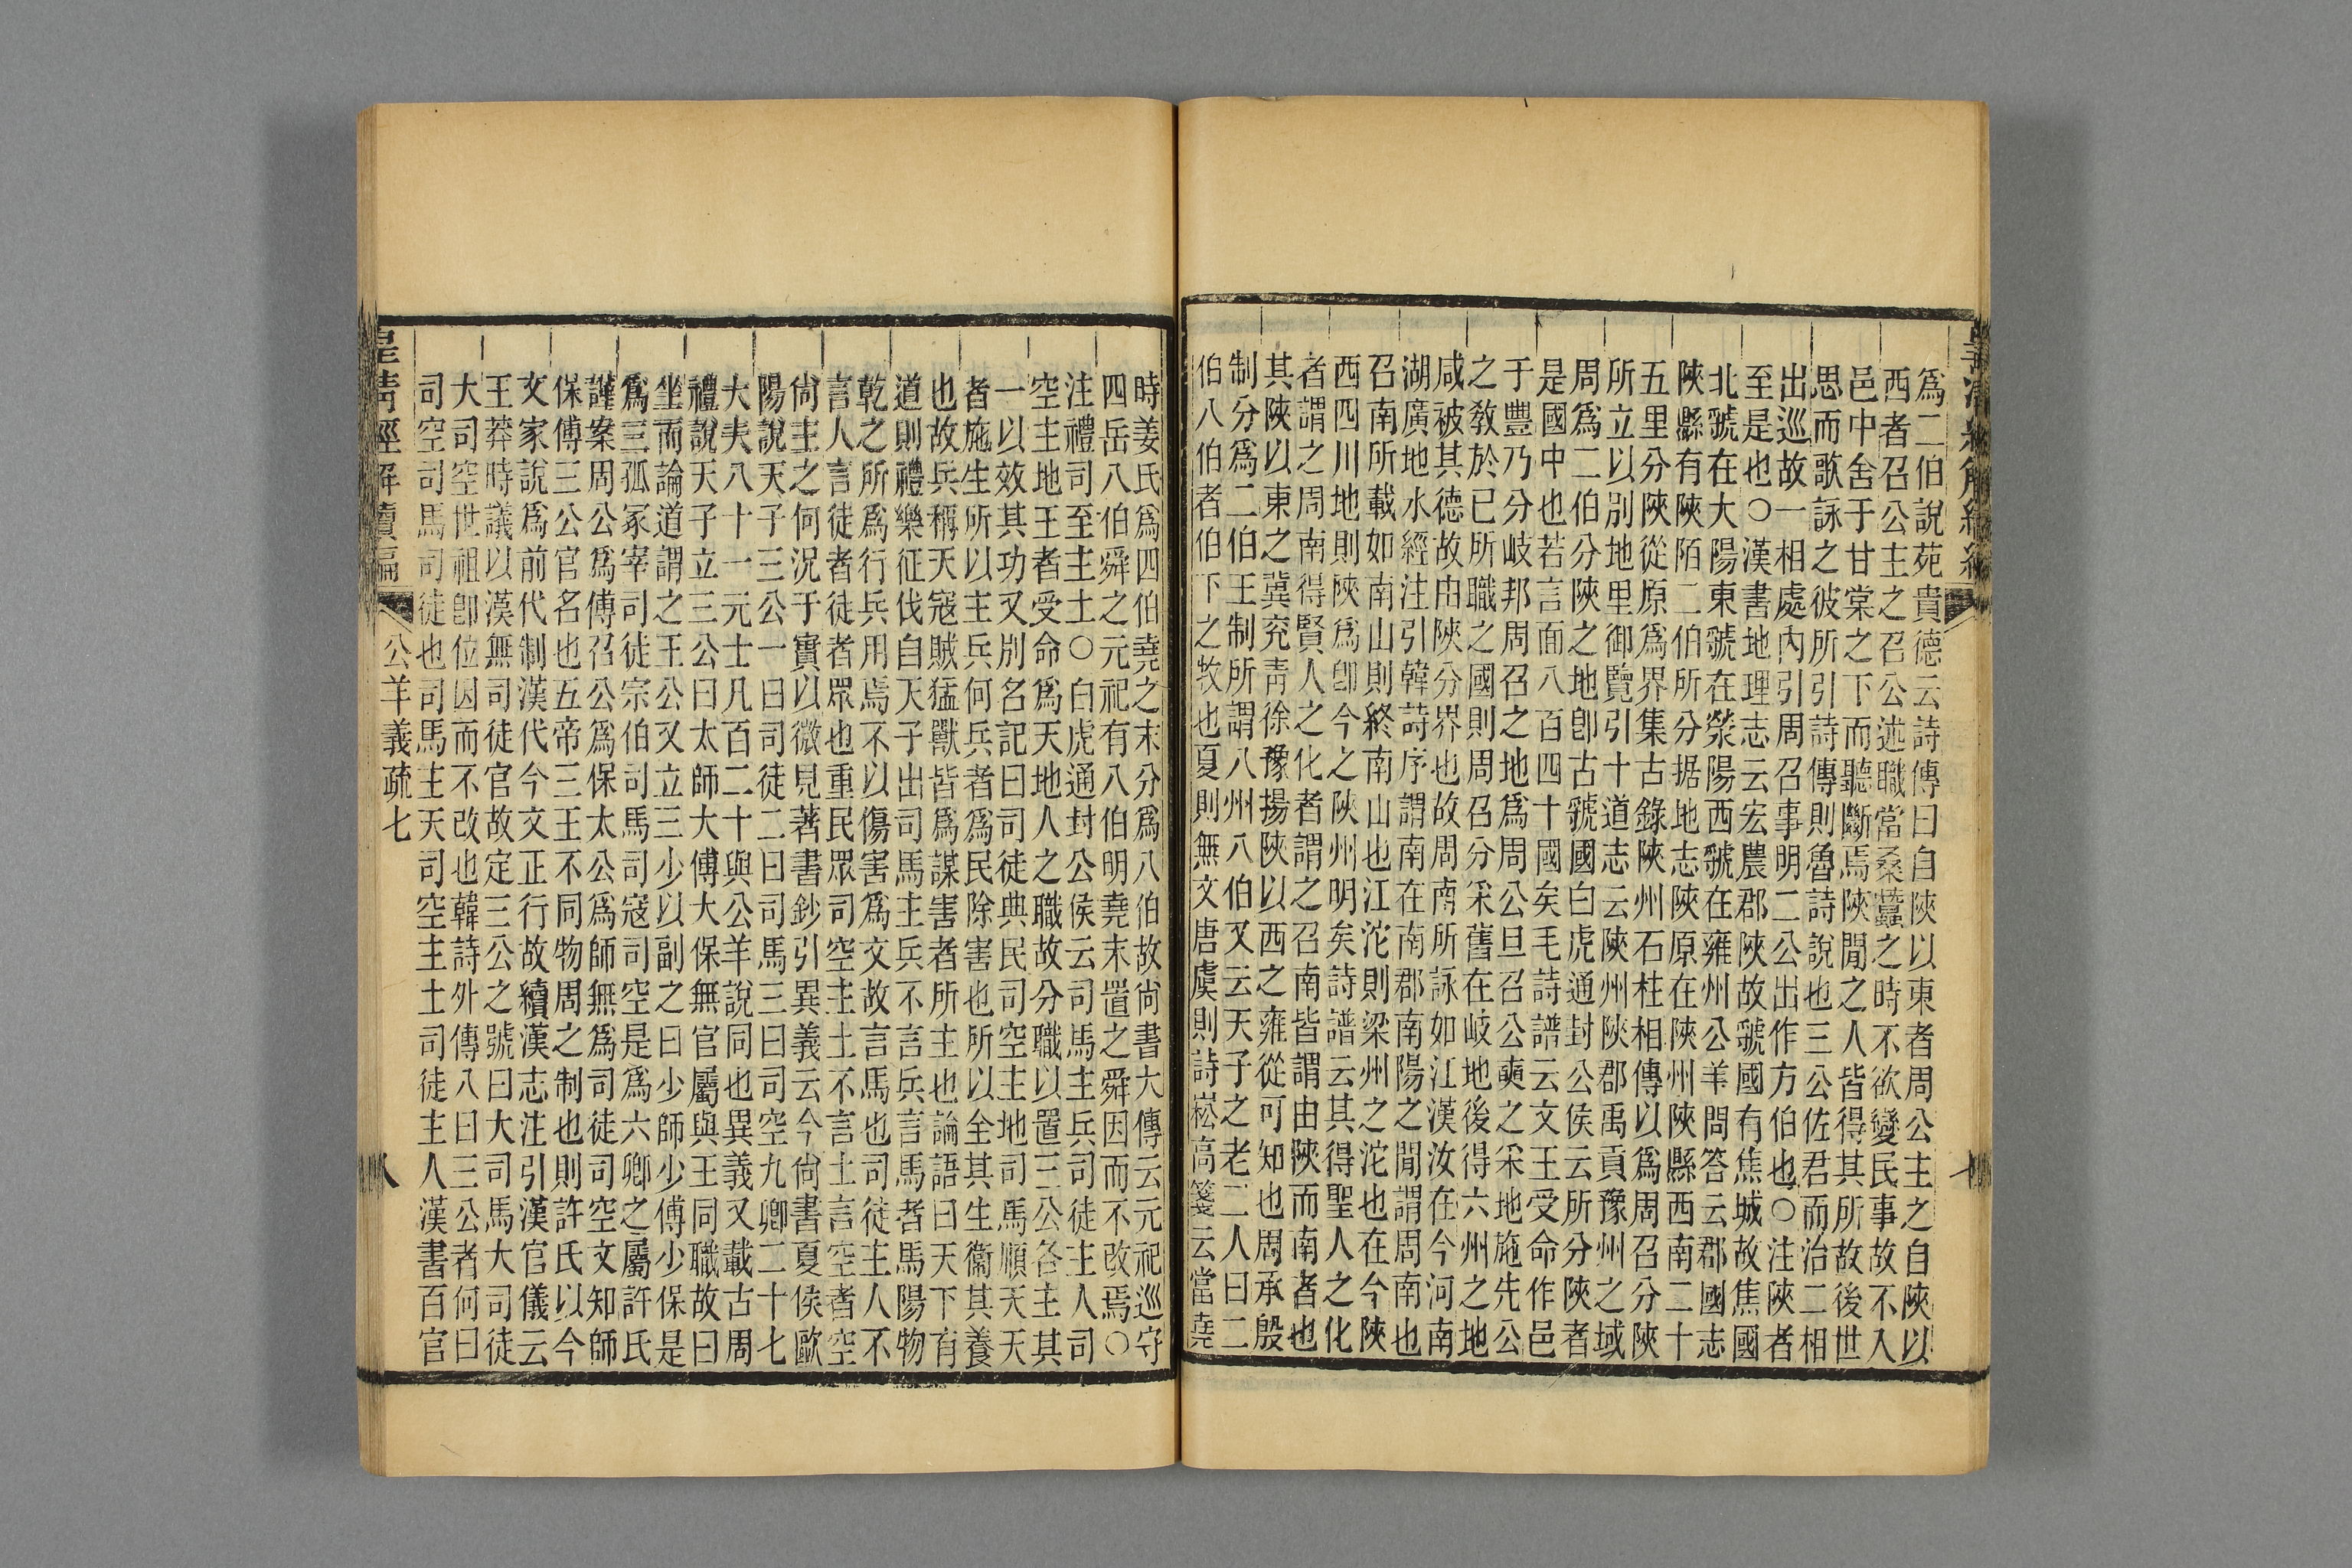 為二伯說苑貴德云詩傳曰自陝以東者周公主之自陝以
西者召公主之召公述職當桑蠶之時不欲變民事故不入
邑中舍于甘棠之下而聽斷焉陝閒之人皆得其所故後世
思而歌詠之彼所引詩傳則魯詩說也三公佐君而治二相
出巡故一相處內引周召事明二公出作方伯也○注陝者
至是也○漢書地理志云宏農郡陝故虢國有焦城故焦國
北虢在大陽東虢在滎陽西虢在雍州公羊問答云郡國志
陝縣有陝陌二伯所分据地志陝原在陝州陝縣西南二十
五里分陝從原為界集古錄陝州石柱相傳以為周召分陝
所立以別地里御覽引十道志云陝州陝郡禹貢豫州之域
周為二伯分陝之地卽古虢國曰虎通封公侯云所分陝者
是國中也若言面八百四十國矣毛詩譜云文王受命作邑
于豐乃分岐邦周召之地為周公旦召公奭之采地施先公
之敎於已所職之國則周召分采舊在岐地後得六州之地
咸被其德故由陝分界也故周南所詠如江漢汝在今河南
湖廣地水經注引韓詩序謂南在南郡南陽之閒謂周南也
召南所載如南山則終南山也江沱則梁州之沱也在今陝
西四川地則陝為卽今之陝州明矣詩譜云其得聖人之化
者謂之周南得賢人之化者謂之召南皆謂由陝而南者也
其陝以東之冀兗青徐豫揚陝以西之雍從可知也周承殷
制分為二伯王制所謂八州八伯又云天子之老二人曰二
伯八伯者伯下之牧也夏則無文唐虞則詩崧高箋云當堯
時姜氏為四伯堯之末分為八伯故尙書大傳云元祀巡守
四岳八伯舜之元祀有八伯明堯末置之舜因而不改焉○
注禮司至主土○白虎通封公侯云司馬主兵司徒主人司
空主地王者受命為天地人之職故分職以置三公各主其
一以效其功又別名記曰司徒典民司空主地司馬順天天
者施生所以主兵何兵者為民除害也所以全其生衞其養
也故兵稱天寇賊猛獸皆為謀害者所主也論語曰天下有
道則禮樂征伐自天子出司馬主兵不言兵言馬者馬陽物
乾之所為行兵用焉不以傷害為文故言馬也司徒主人不
言人言徒者徒者眾也重民眾司空主土不言土言空者空
尙主之何況于實以微見著書鈔引異義云今尙書夏侯歐
陽說天子三公一曰司徒二曰司馬三曰司空九卿二十七
大夫八十一元士凡百二十與公羊說同也異義又載古周
禮說天子立三公曰太師大傅大保無官屬與王同職故曰
坐而論道謂之王公又立三少以副之曰少師少傅少保是
為三孤冢宰司徒宗伯司馬司寇司空是為六卿之屬許氏
謹案周公為傅召公為保太公為師無為司徒司空文知師
保傅三公官名也五帝三王不同物周之制也則許氏以今
文家說為前代制漢代今文正行故續漢志注引漢官儀云
王莽時議以漢無司徒官故定三公之號曰大司馬大司徒
大司空世祖卽位因而不改也韓詩外傳八曰三公者何曰
司空司馬司徒也司馬主天司空主土司徒主人漢書百官
皇清經解續編
公羊義疏七
八